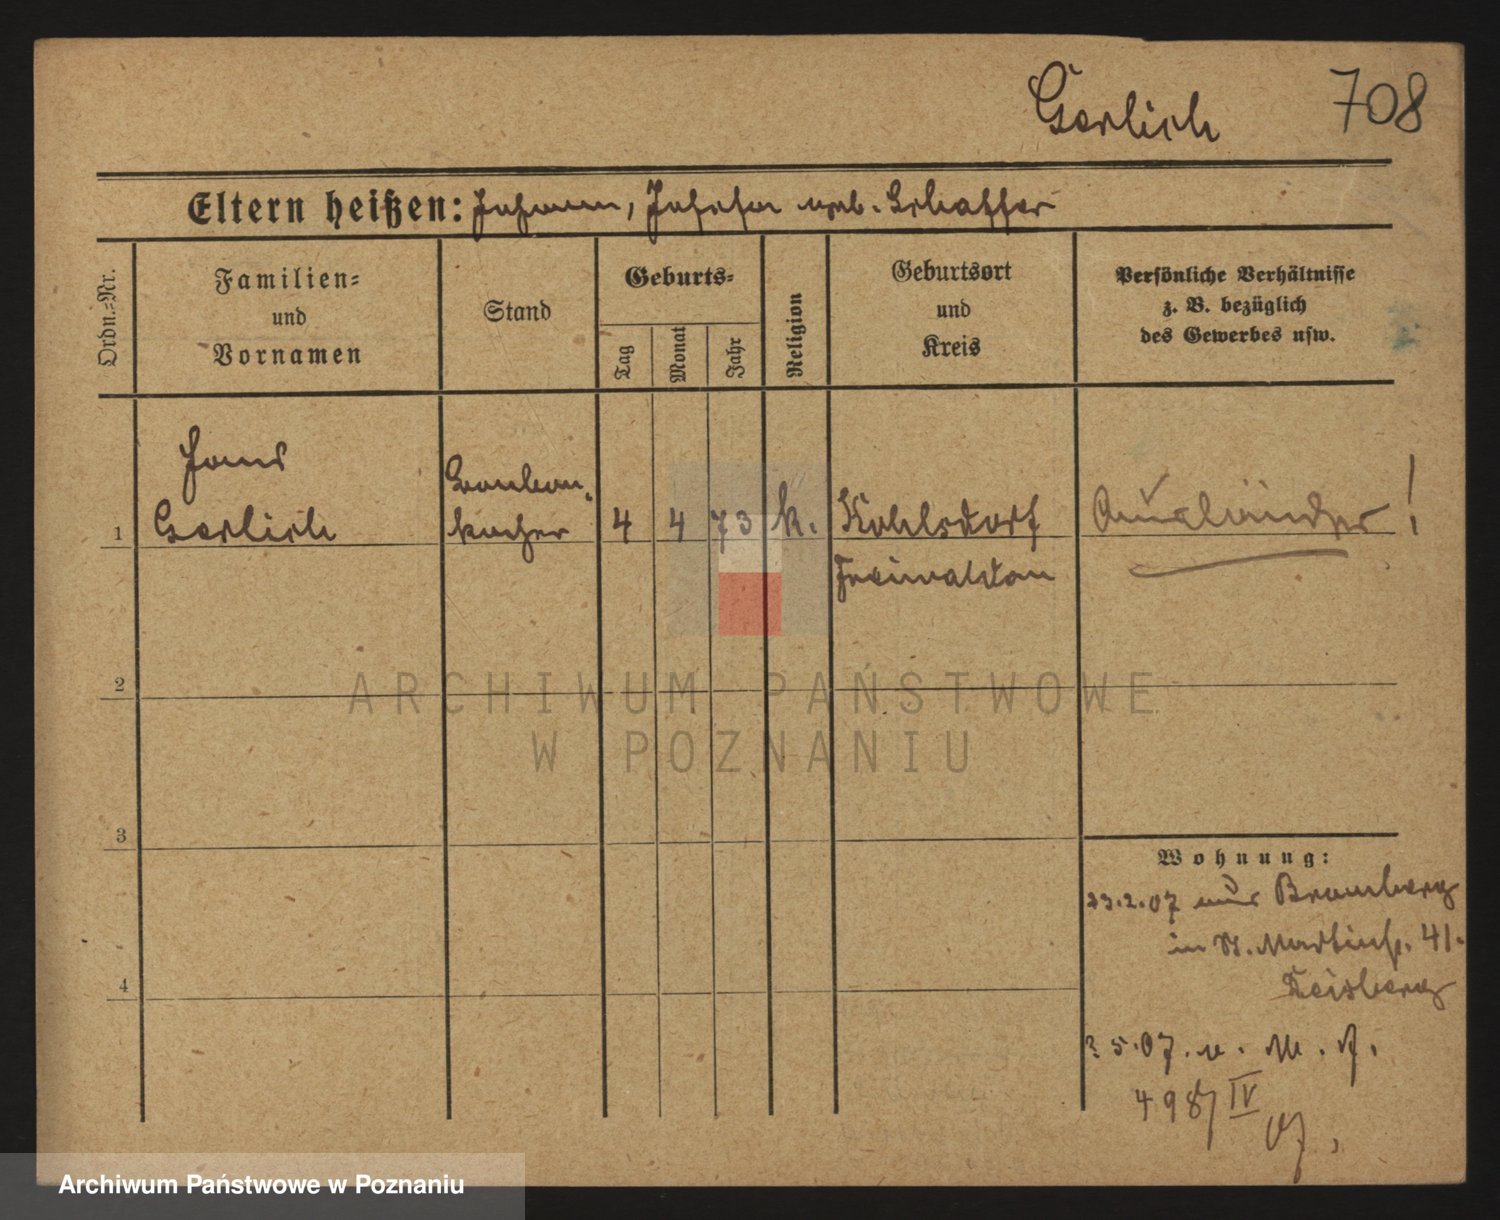 Gerlich 708
Eltern heißen: Johann, Josefa geb. Schaffer
Ordn.-Nr.
Familien-
und
Vornamen
Stand
Geburts-
Tag
Monat
Jahr
Religion
Geburtsort
und
Kreis
Persönliche Verhältnisse
z. B. bezüglich
des Gewerbes usw.
Hans
Gerlich
Bonbon-
kocher
1 4 4 73 k. Kohlsdorf Ausländer!
Freiwaldau
2
ARCHIWUM PAŃSTWOWE
W POZNANIU
3
Wohnung:
23.2.07 aus Bromberg
in St. Martinstr. 41.
4
5.07. n. M.
498/IV
Archiwum Państwowe w Poznaniu